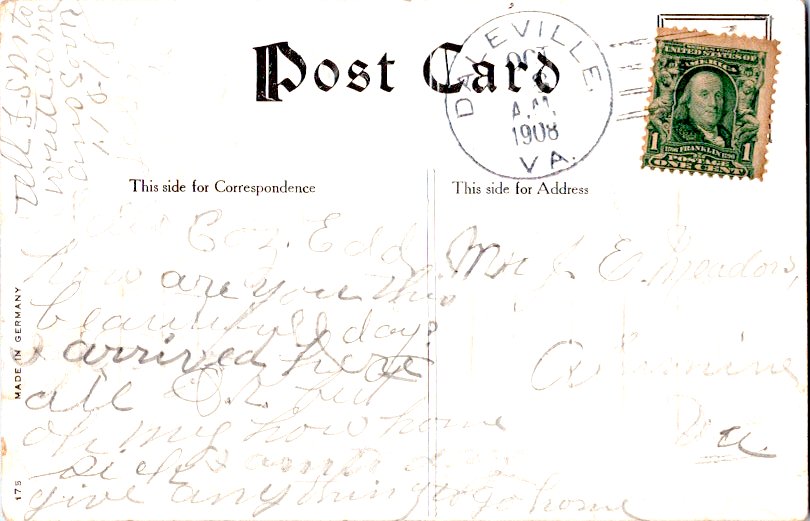 Post Card
DALEVILLE.
OCT
A.M.
1908
VA.
UNITED STATES OF
AMERICA
1 FRANKLIN 1
POSTAGE
ONE CENT
This side for Correspondence
This side for Address
Coz. Edd
how are you this
beautiful day?
I arrived here
all O.K. but
oh my how home
sick I am I'd
give anything to go home
Tell
to
write to me
soon
Mr J. E. Meadows,
Va.
MADE IN GERMANY
175